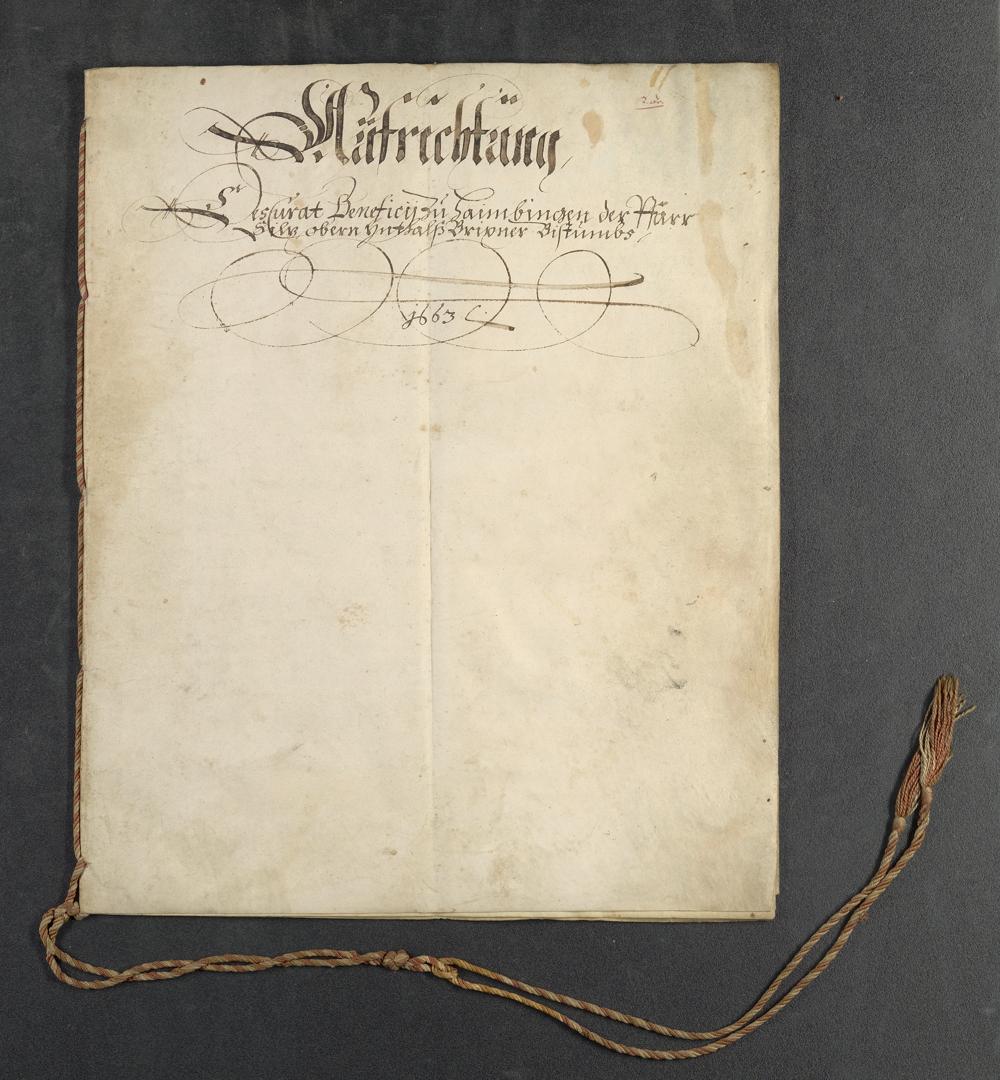 Aufrichtung
Des Curat Beneficij Zu Haimbingen der Pfarr
Silz obern Ynthalß Brixner Bistumbs
1663